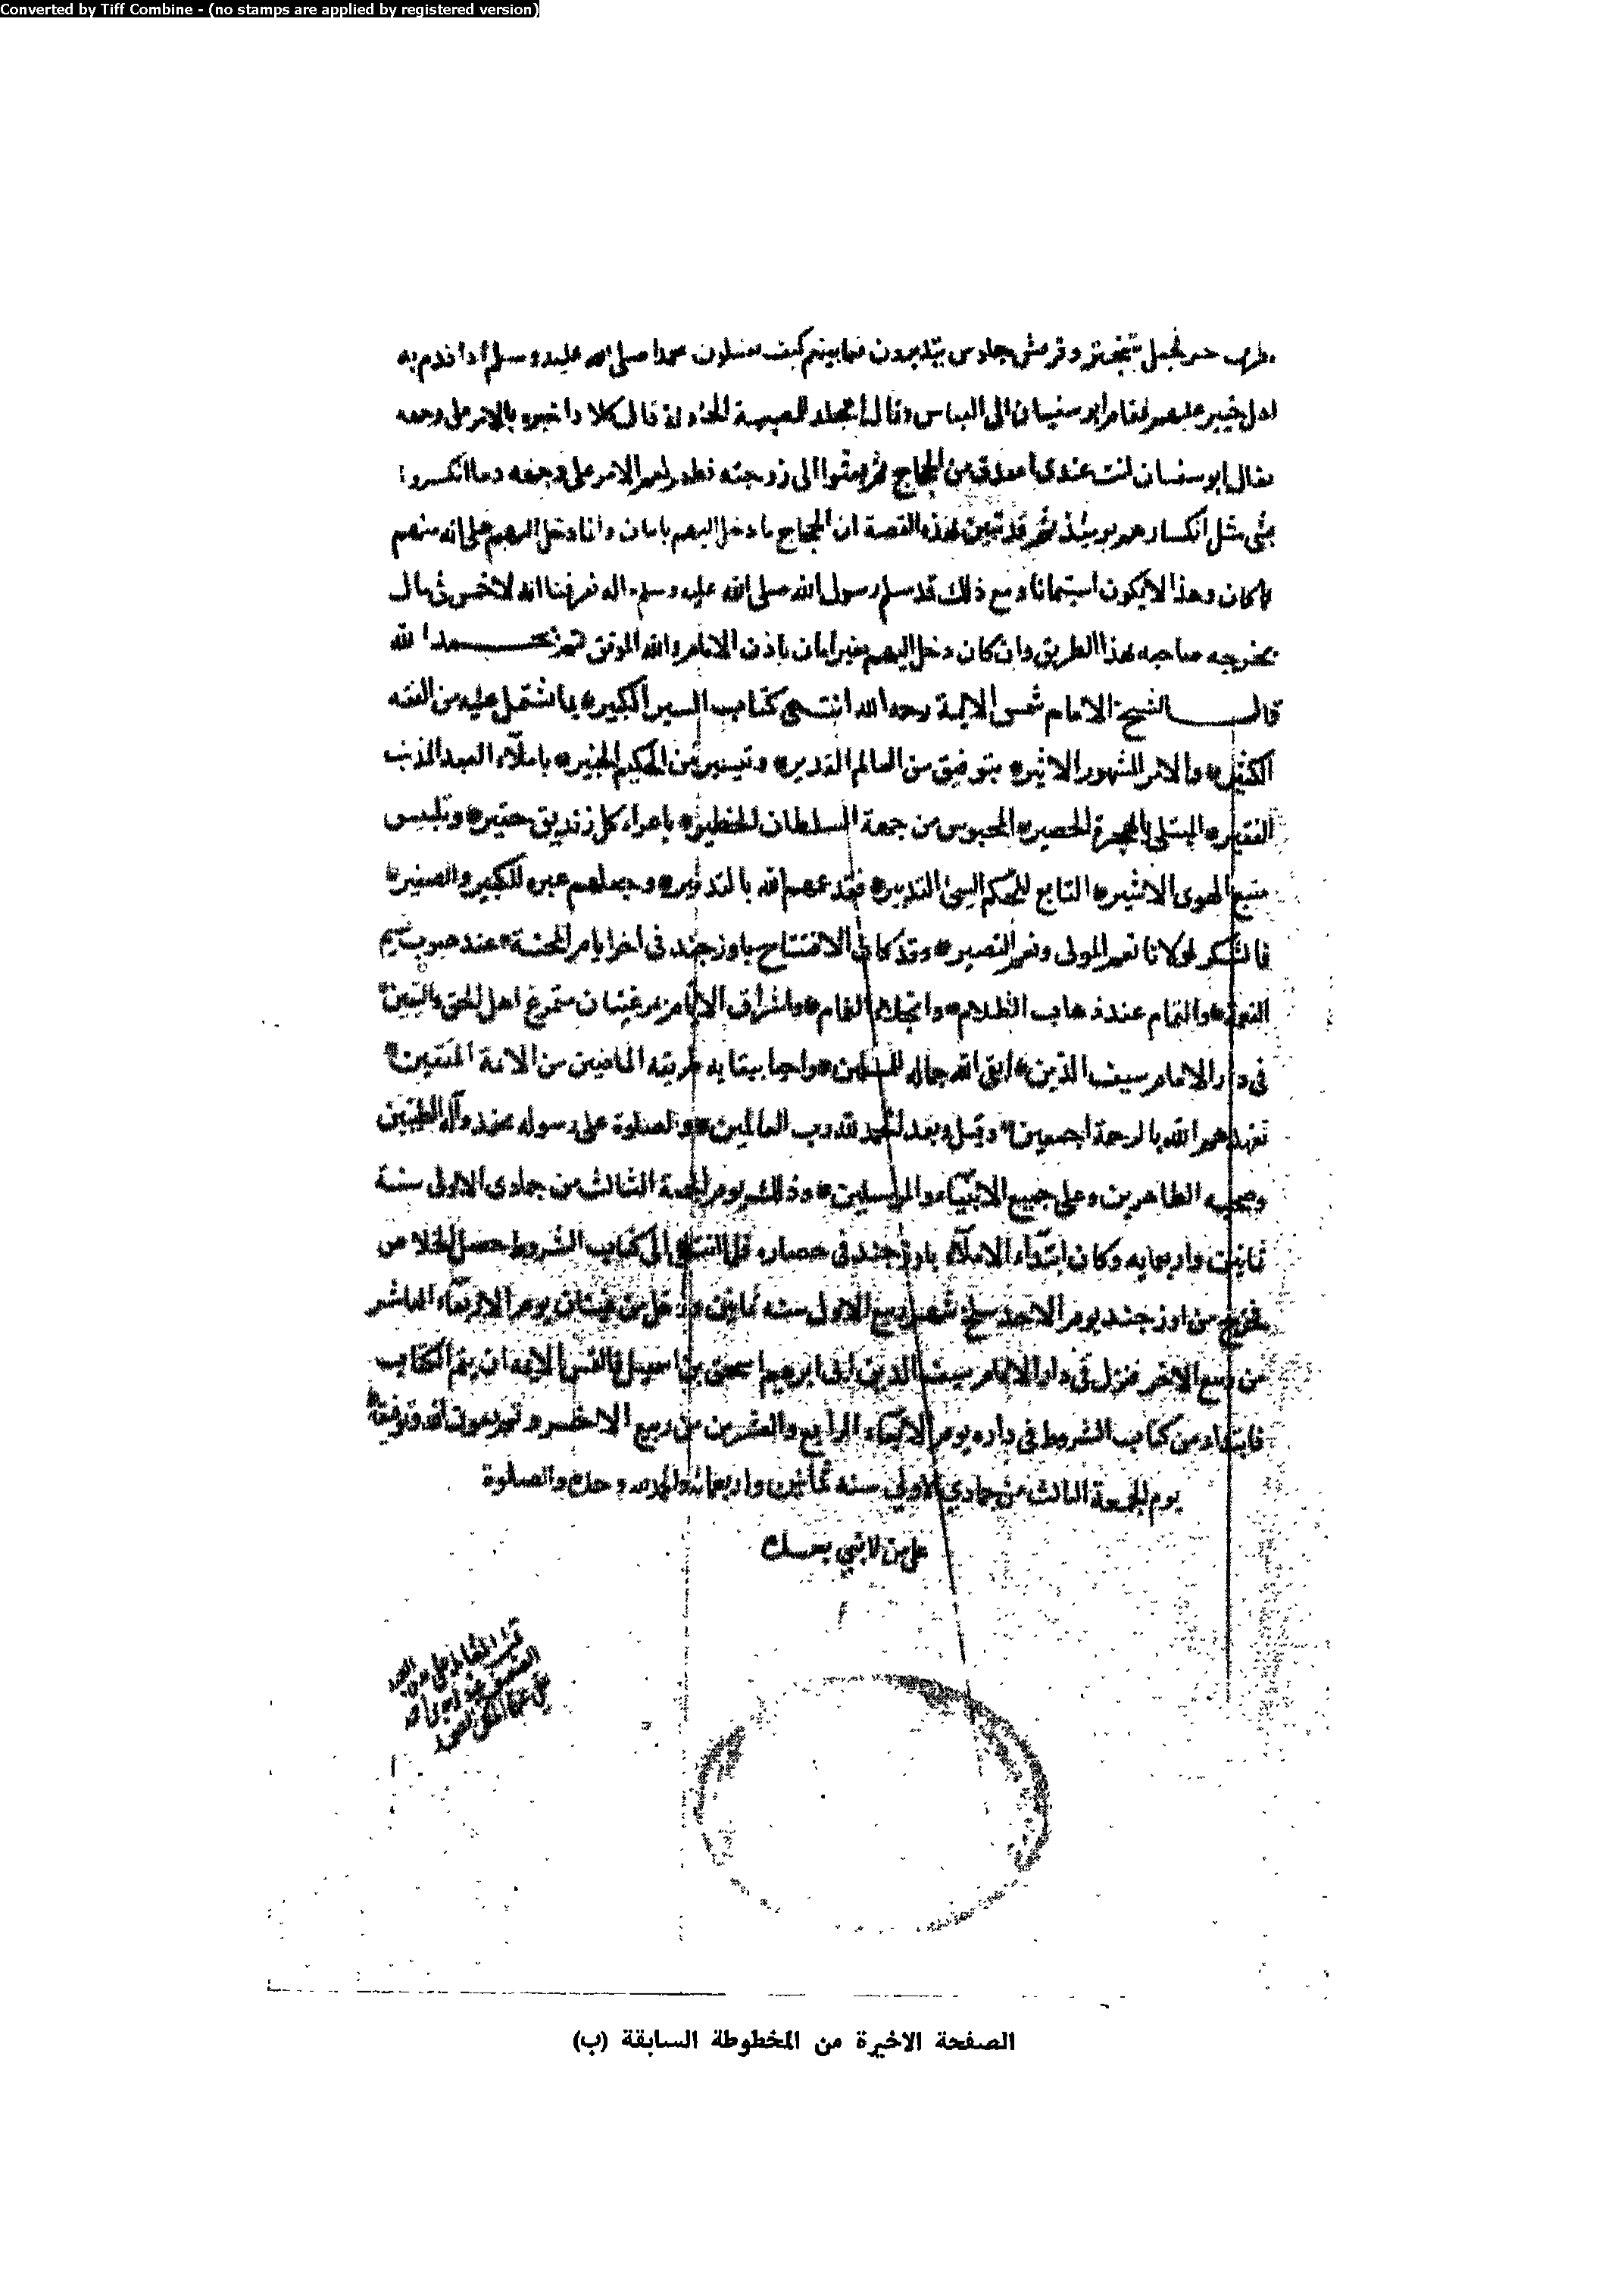 Converted by Tiff Combine - (no stamps are applied by registered version)
فجعل يتبختر وقريش جلوس يتدبرون فيما بينهم كيف محمدا صلى الله عليه وسلم اذا قدم به
اهل خيبر عليهم فقام ابو سفيان الى العباس وقال المصيبة قال كلا واخبره بالامر على وجهه
فقال ابو سفيان انت عندى اصدق من الحجاج ثم بعثوا الى زوجته فظهر لهم الامر على وجهه وما انكسروا
بشى مثل انكسارهم يومئذ ثم قد تبين بهذه القصة ان الحجاج ما دخل اليهم بامان وانا دخل اليهم على انه منهم
كان وهذا لا يكون استيمانا ومع ذلك قد سلم رسول الله صلى الله عليه وسلم ماله فعرفنا انه لا خمس فى مال
يخرجه صاحبه بهذا الطريق وان كان دخل اليهم بغير امان باذن الامام والله الموفق حمدا لله
قال الشيخ الامام شمس الائمة رحمه الله انتهى كتاب السير الكبير بما اشتمل عليه من الفقه
الكثير والامر المشهور الاثير بتوفيق من العالم القدير وتيسير من الحكيم الخبير باملاء العبد المذنب
الفقير المبتلى بالهجرة الحصير المحبوس من جهة السلطان الخطير باغراء كل زنديق حقير وتلبيس
متبع الهوى الاثير التابع للحكم السئ التدبير فقد عمهم الله بالتدمير وجعلهم عبرة للكبير والصغير
فالشكر لمولانا نعم المولى ونعم النصير وقد كان الافتتاح باوزجند فى اخر ايام المحنة عند هبوب نسيم
والتمام عند ذهاب الظلام وانجلاء الغمام واشراق الايام بمرغينان متمرغ اهل الحق والدين
فى دار الامام سيف الدين ابقى الله جماله للمسلمين واحيا ببقايه طريقة الماضين من الائمة المتقين
تغمدهم الله بالرحمة اجمعين وقبل وبعد الحمد لله رب العالمين والصلوة على رسوله محمد وآله الطيبين
وصحبه الطاهرين وعلى جميع الانبياء والمرسلين وذلك يوم الجمعة الثالث من جمادى الاولى سنة
ثمانين واربعمايه وكان ابتداء الاملاء باوزجند فى حصاره فلما انتهى الى كتاب الشروط حصل الخلاص
فخرج من اوزجند يوم الاحد سلخ شهر ربيع الاول سنه ثمانين ودخل يوم الاربعاء العاشر
من ربيع الاخر فنزل فى دار الامام سيف الدين ابى ابرهيم اسحق بن اسمعيل فالتمس الايمه ان يتم الكتاب
فابتداء من كتاب الشروط فى داره يوم الرابع والعشرين من ربيع الاخر وتم بعون الله وتوفيقه
يوم الجمعة الثالث من جمادي الاولي سنه ثمانين واربعمائة والحمد لله وحده والصلوة
على من لا نبي بعده
الصفحة الاخيرة من المخطوطة السابقة (ب)